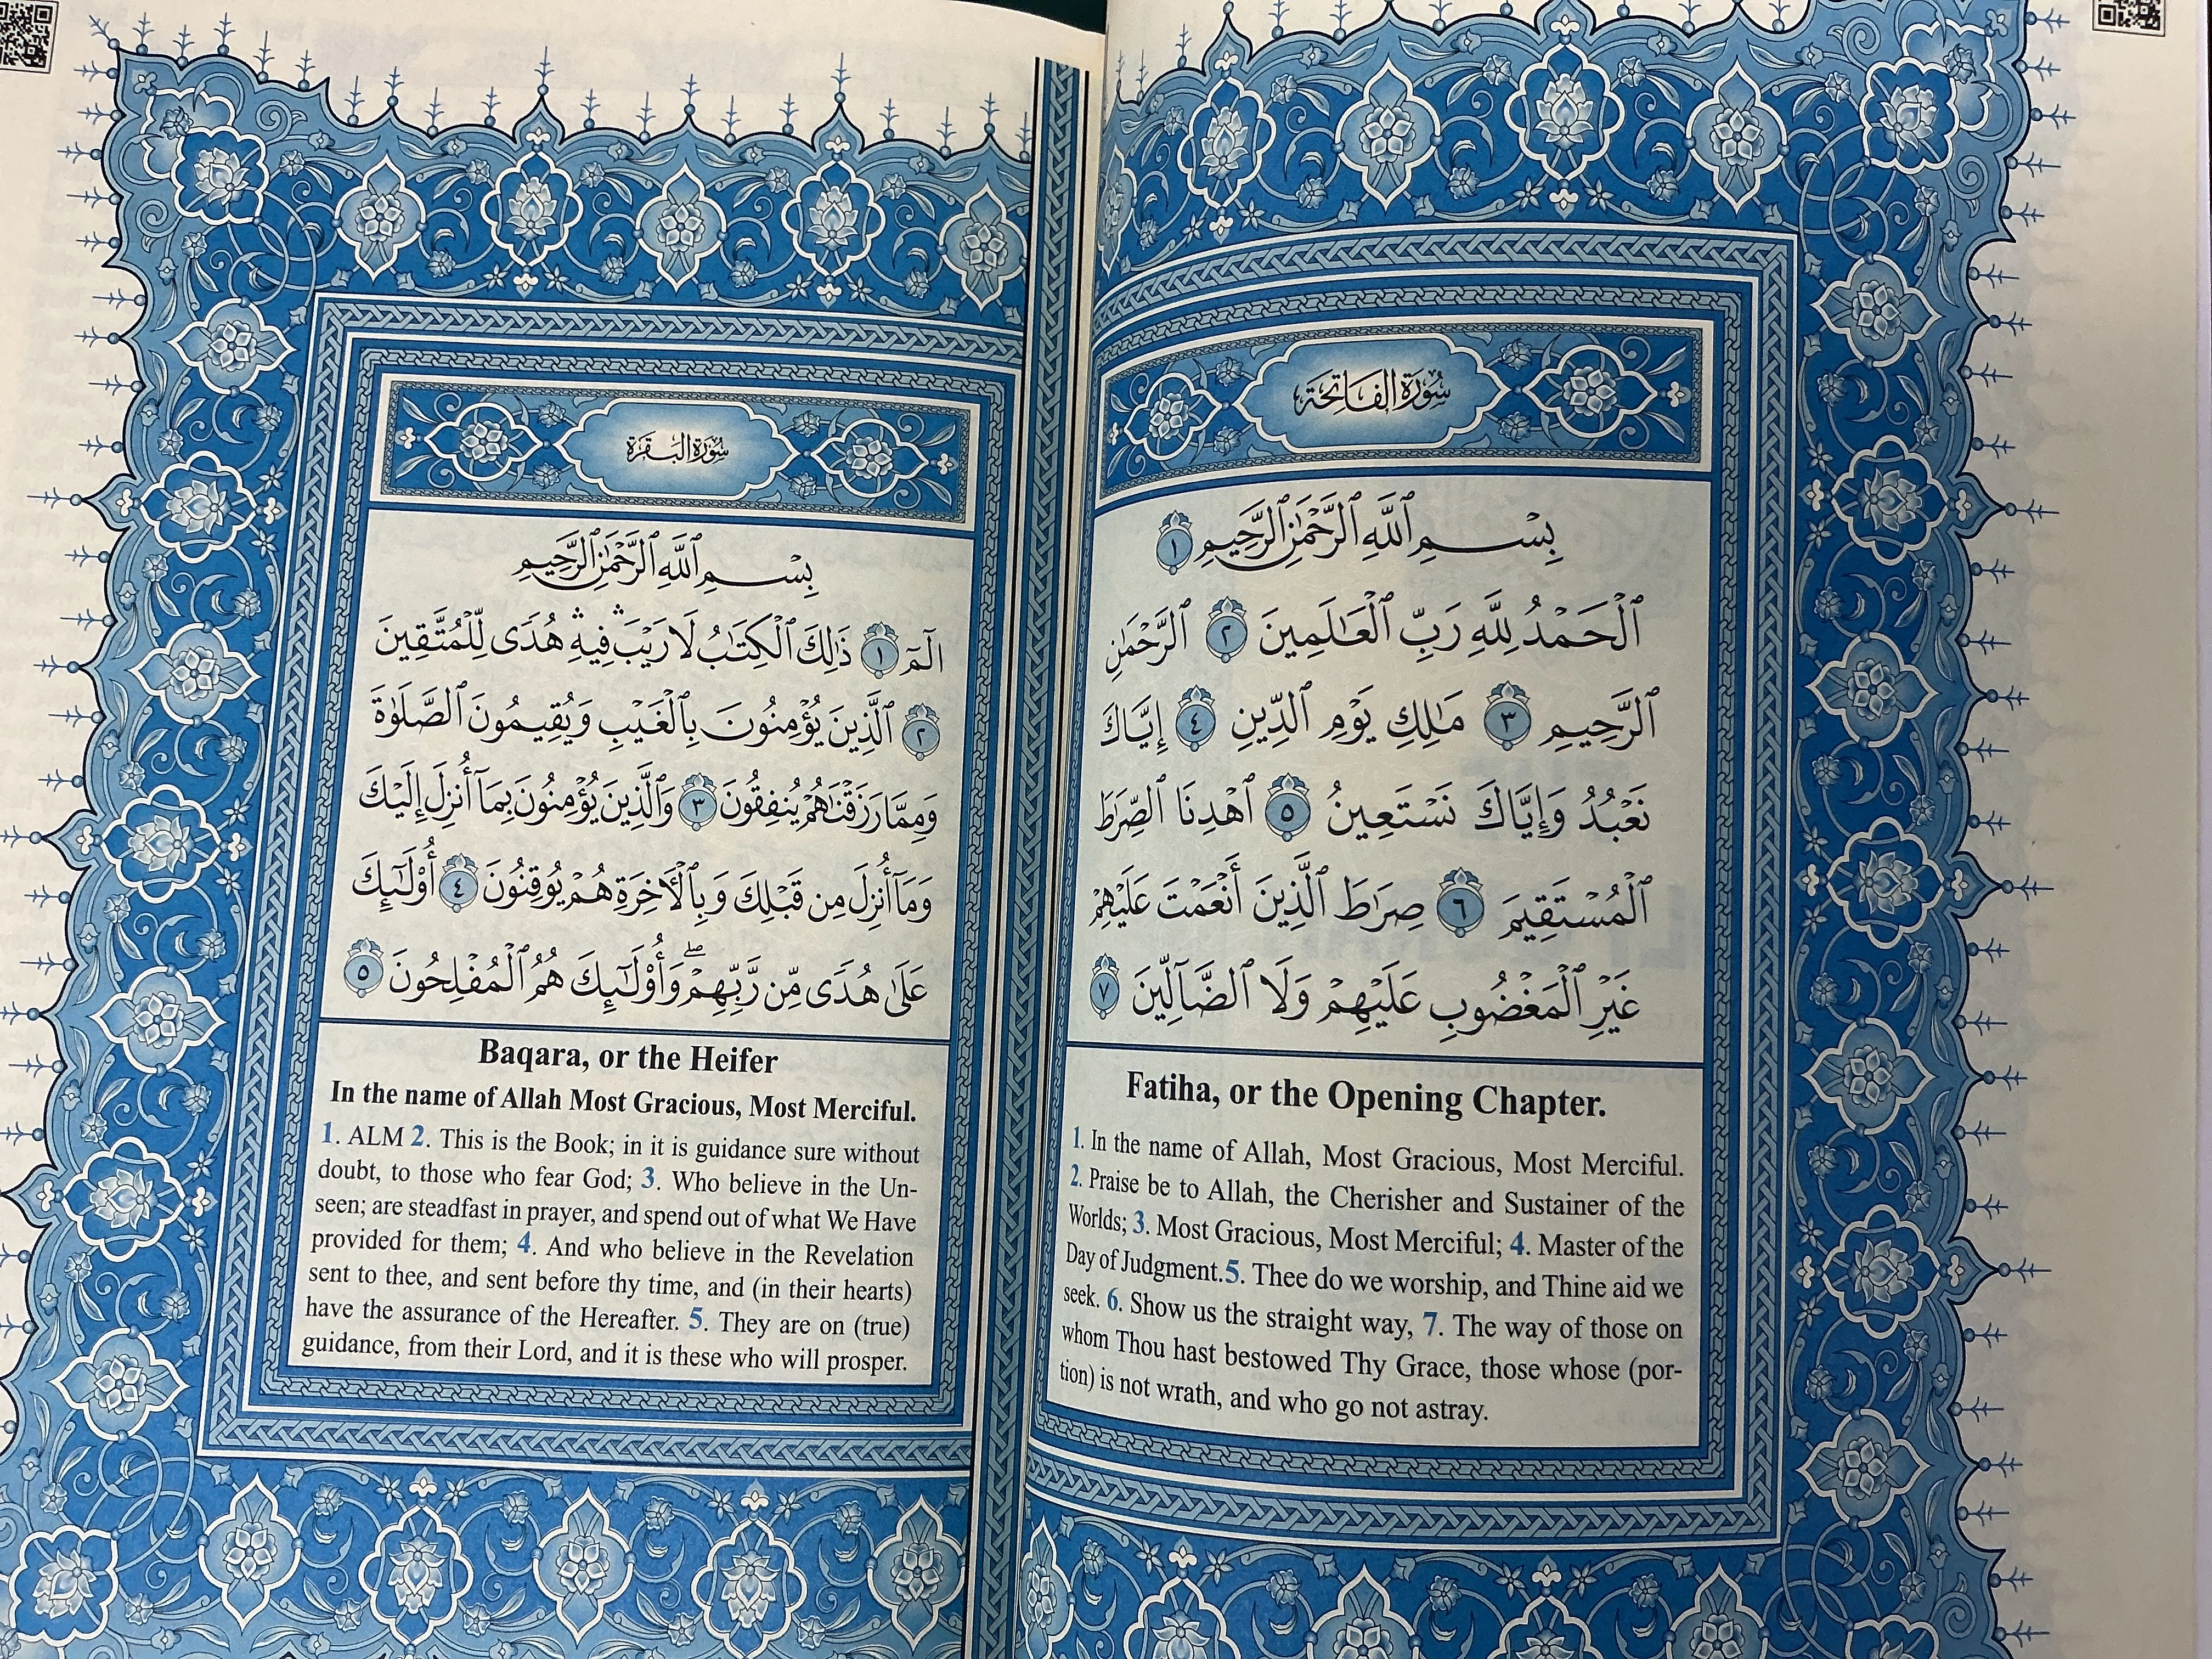 سُورَةُ الفَاتِحَةِ
بِسْمِ ٱللَّهِ ٱلرَّحْمَٰنِ ٱلرَّحِيمِ ١
ٱلْحَمْدُ لِلَّهِ رَبِّ ٱلْعَٰلَمِينَ ٢ ٱلرَّحْمَٰنِ
ٱلرَّحِيمِ ٣ مَٰلِكِ يَوْمِ ٱلدِّينِ ٤ إِيَّاكَ
نَعْبُدُ وَإِيَّاكَ نَسْتَعِينُ ٥ ٱهْدِنَا ٱلصِّرَٰطَ
ٱلْمُسْتَقِيمَ ٦ صِرَٰطَ ٱلَّذِينَ أَنْعَمْتَ عَلَيْهِمْ
غَيْرِ ٱلْمَغْضُوبِ عَلَيْهِمْ وَلَا ٱلضَّآلِّينَ ٧
Fatiha, or the Opening Chapter.
1. In the name of Allah, Most Gracious, Most Merciful.
2. Praise be to Allah, the Cherisher and Sustainer of the
Worlds; 3. Most Gracious, Most Merciful; 4. Master of the
Day of Judgment.5. Thee do we worship, and Thine aid we
seek. 6. Show us the straight way, 7. The way of those on
whom Thou hast bestowed Thy Grace, those whose (por-
tion) is not wrath, and who go not astray.
سُورَةُ البَقَرَةِ
بِسْمِ ٱللَّهِ ٱلرَّحْمَٰنِ ٱلرَّحِيمِ
الٓمٓ ١ ذَٰلِكَ ٱلْكِتَٰبُ لَا رَيْبَ ۛ فِيهِ ۛ هُدًى لِّلْمُتَّقِينَ
٢ ٱلَّذِينَ يُؤْمِنُونَ بِٱلْغَيْبِ وَيُقِيمُونَ ٱلصَّلَوٰةَ
وَمِمَّا رَزَقْنَٰهُمْ يُنفِقُونَ ٣ وَٱلَّذِينَ يُؤْمِنُونَ بِمَآ أُنزِلَ إِلَيْكَ
وَمَآ أُنزِلَ مِن قَبْلِكَ وَبِٱلْأٓخِرَةِ هُمْ يُوقِنُونَ ٤ أُو۟لَٰٓئِكَ
عَلَىٰ هُدًى مِّن رَّبِّهِمْ ۖ وَأُو۟لَٰٓئِكَ هُمُ ٱلْمُفْلِحُونَ ٥
Baqara, or the Heifer
In the name of Allah Most Gracious, Most Merciful.
1. ALM 2. This is the Book; in it is guidance sure without
doubt, to those who fear God; 3. Who believe in the Un-
seen; are steadfast in prayer, and spend out of what We Have
provided for them; 4. And who believe in the Revelation
sent to thee, and sent before thy time, and (in their hearts)
have the assurance of the Hereafter. 5. They are on (true)
guidance, from their Lord, and it is these who will prosper.